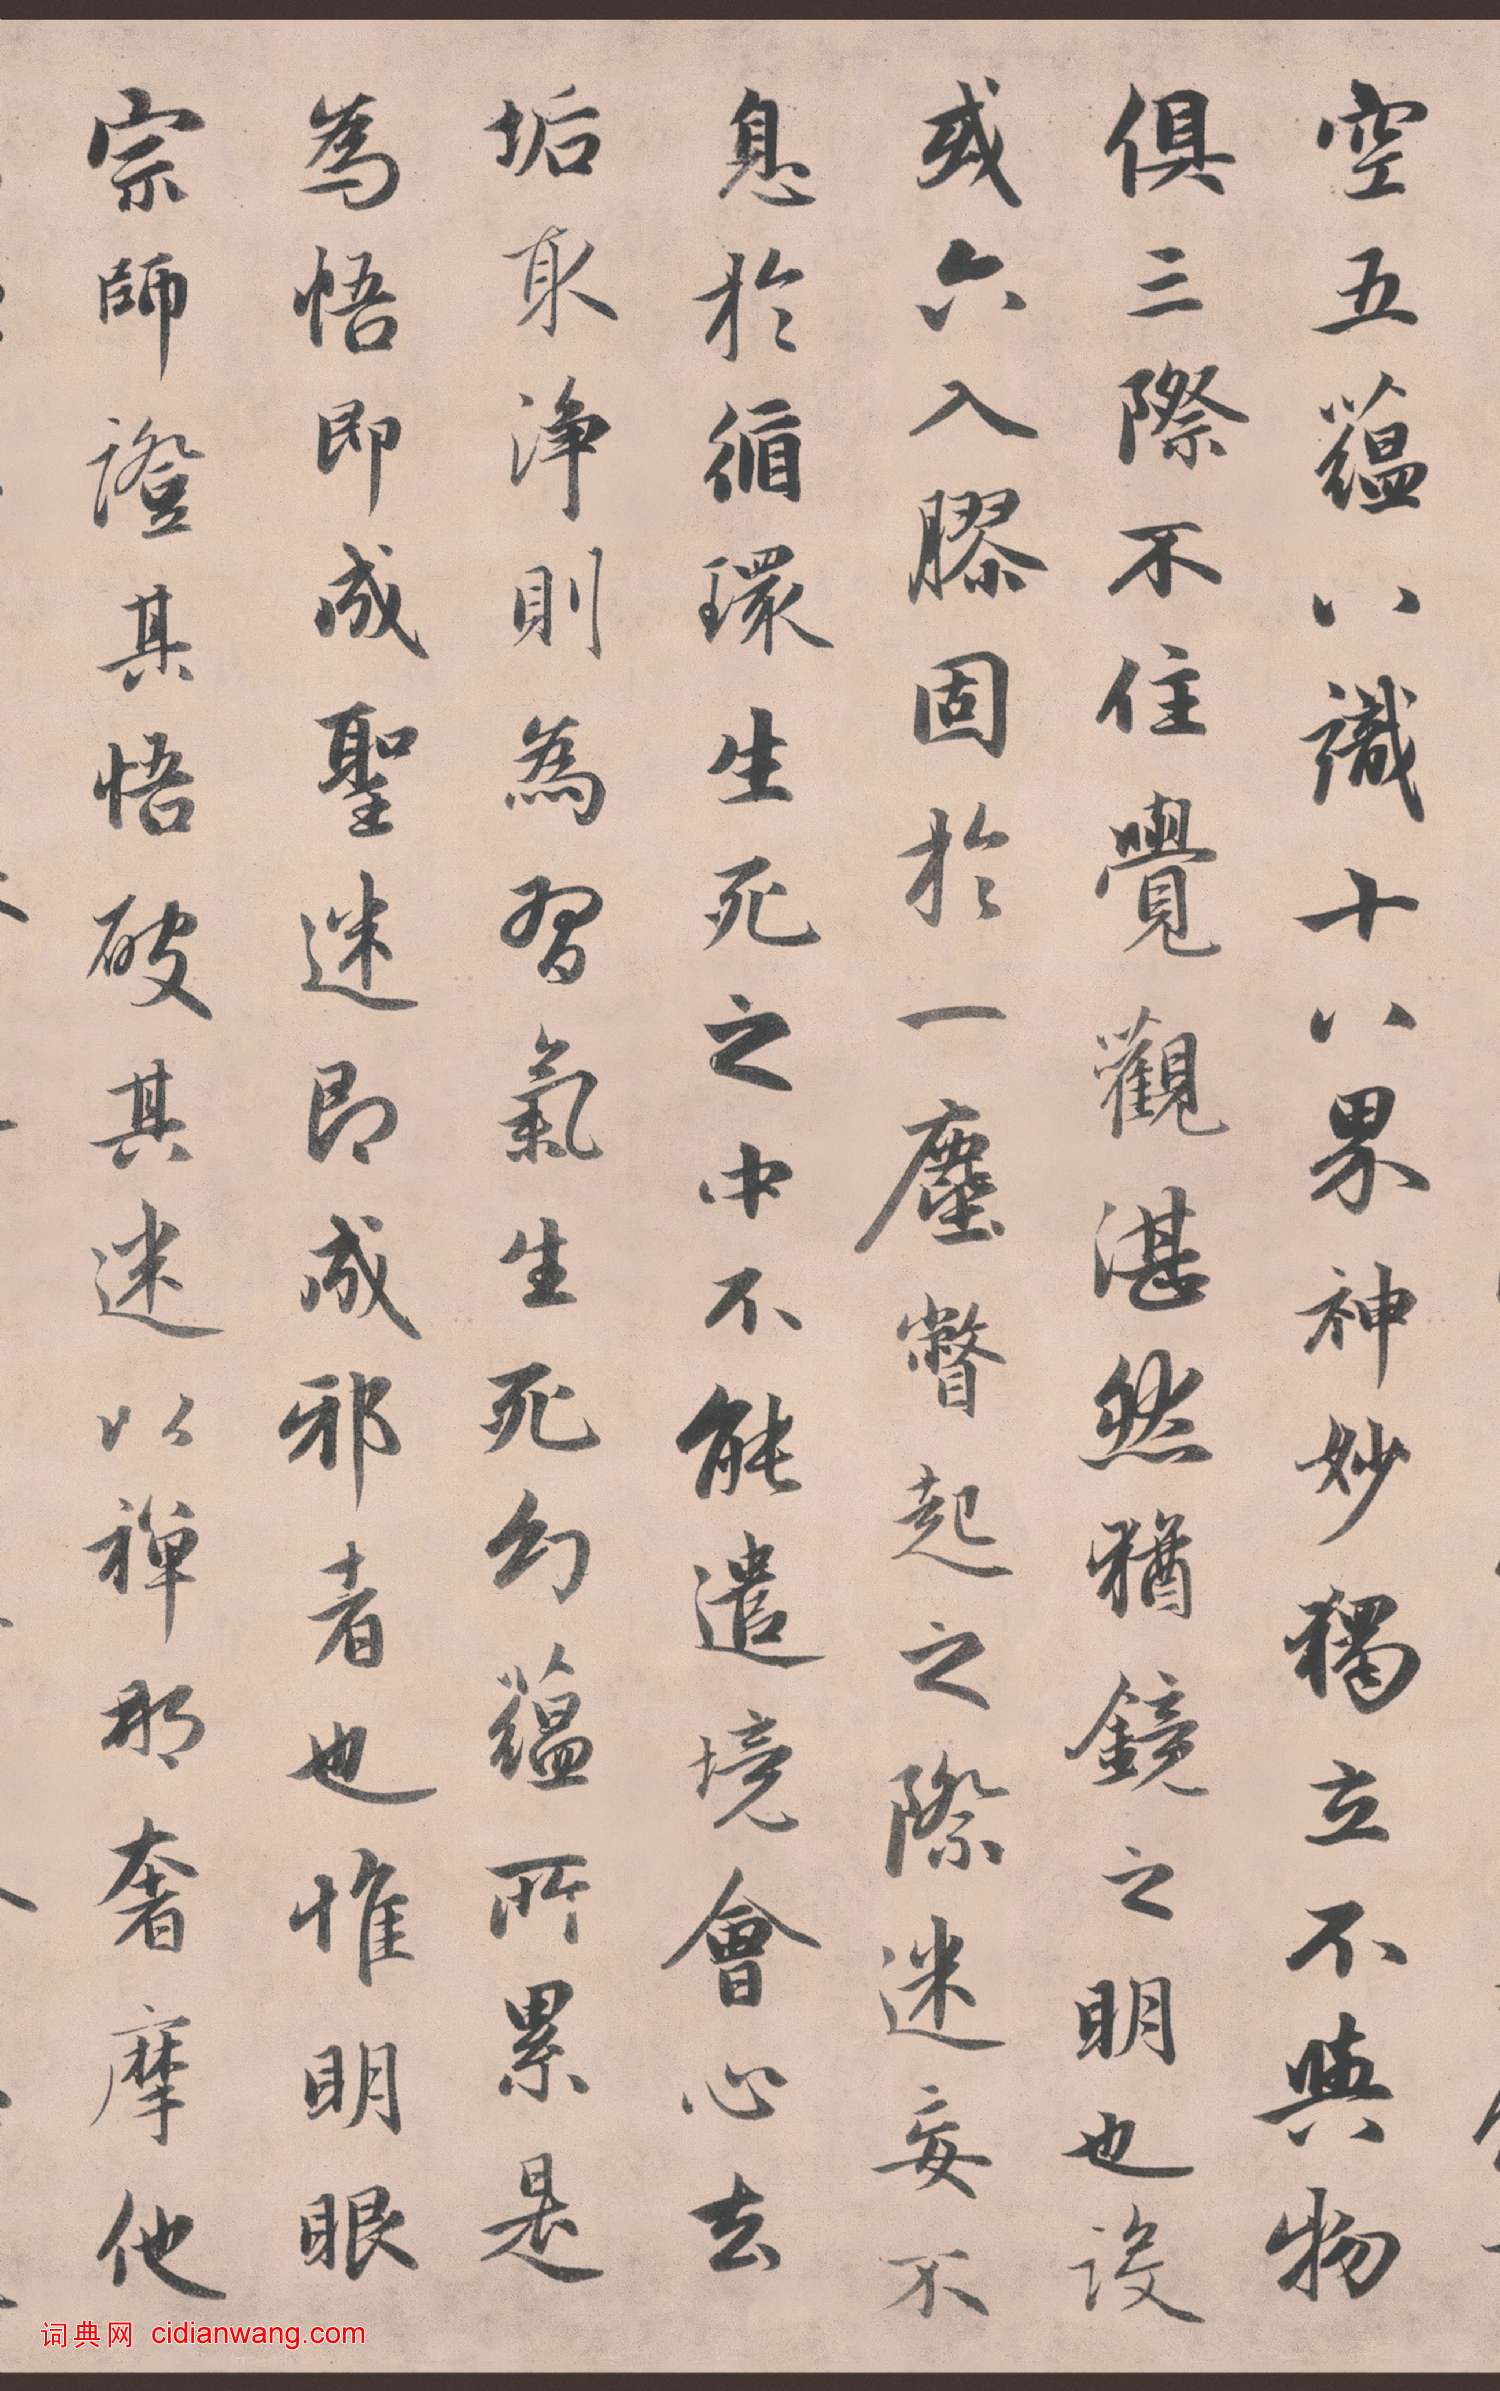 空五蘊八識十八界神妙獨立不與物
俱三際不住覺觀湛然猶鏡之明也設
或六入膠固於一塵瞥起之際迷妄不
息於循環生死之中不能遣境會心去
垢取淨則為習氣生死幻蘊所累是
為悟即成聖迷即成邪者也惟明眼
宗師證其悟破其迷以禪那奢摩他
词典网 cidianwang.com